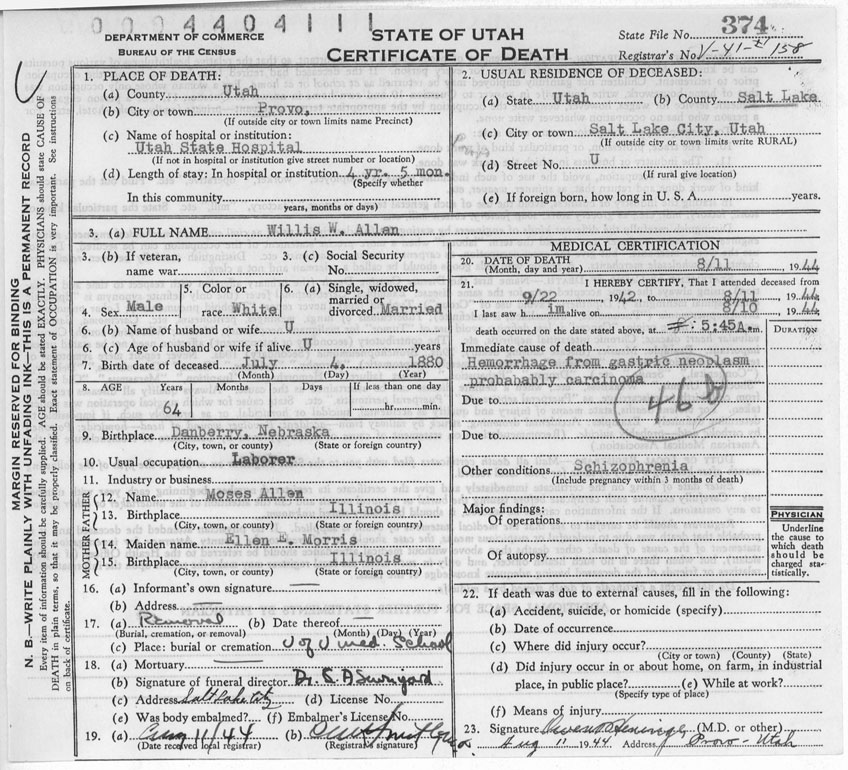 0004404111
DEPARTMENT OF COMMERCE
BUREAU OF THE CENSUS
STATE OF UTAH
CERTIFICATE OF DEATH
State File No. 374
Registrar's No. V-41- 158
MARGIN RESERVED FOR BINDING
N. B.—WRITE PLAINLY WITH UNFADING INK—THIS IS A PERMANENT RECORD
Every item of information should be carefully supplied. AGE should be stated EXACTLY. PHYSICIANS should state CAUSE OF
DEATH in plain terms, so that it may be properly classified. Exact statement of OCCUPATION is very important. See instructions
on back of certificate.
1. PLACE OF DEATH:
(a) County Utah
(b) City or town Provo,
(If outside city or town limits name Precinct)
(c) Name of hospital or institution:
Utah State Hospital
(If not in hospital or institution give street number or location)
(d) Length of stay: In hospital or institution 4 yr. 5 mon.
(Specify whether
In this community
years, months or days)
2. USUAL RESIDENCE OF DECEASED:
(a) State Utah (b) County Salt Lake
(c) City or town Salt Lake City, Utah
(If outside city or town limits write RURAL)
(d) Street No. U
(If rural give location)
(e) If foreign born, how long in U. S. A. years.
3. (a) FULL NAME Willis W. Allen
3. (b) If veteran, name war
3. (c) Social Security No.
4. Sex Male
5. Color or race White
6. (a) Single, widowed, married or divorced Married
6. (b) Name of husband or wife U
6. (c) Age of husband or wife if alive U years
7. Birth date of deceased July 4, 1880
(Month) (Day) (Year)
8. AGE Years Months Days If less than one day
64 hr. min.
9. Birthplace Danberry, Nebraska
(City, town, or county) (State or foreign country)
10. Usual occupation Laborer
11. Industry or business
FATHER
12. Name Moses Allen
13. Birthplace Illinois
(City, town, or county) (State or foreign country)
MOTHER
14. Maiden name Ellen E. Morris
15. Birthplace Illinois
(City, town, or county) (State or foreign country)
16. (a) Informant's own signature
(b) Address
17. (a) Removal (b) Date thereof
(Burial, cremation, or removal) (Month) (Day) (Year)
(c) Place: burial or cremation U of U med. School
18. (a) Mortuary
(b) Signature of funeral director Dr.
(c) Address Salt Lake City (d) License No.
(e) Was body embalmed? (f) Embalmer's License No.
19. (a) Aug 11/44 (b)
(Date received local registrar) (Registrar's signature)
MEDICAL CERTIFICATION
20. DATE OF DEATH
(Month, day and year) 8/11 1944
21. I HEREBY CERTIFY, That I attended deceased from
9/22 1942, to 8/11 1944
I last saw him alive on 8/10 1944
death occurred on the date stated above, at 5:45A.m.
DURATION
Immediate cause of death
Hemorrhage from gastric neoplasm
probabably carcinoma
46b
Due to
Due to
Other conditions Schizophrenia
(Include pregnancy within 3 months of death)
Major findings:
Of operations
Of autopsy
PHYSICIAN
Underline
the cause to
which death
should be
charged sta-
tistically.
22. If death was due to external causes, fill in the following:
(a) Accident, suicide, or homicide (specify)
(b) Date of occurrence
(c) Where did injury occur?
(City or town) (County) (State)
(d) Did injury occur in or about home, on farm, in industrial
place, in public place? (e) While at work?
(Specify type of place)
(f) Means of injury
23. Signature (M.D. or other)
Aug 11 1944 Address Provo - Utah